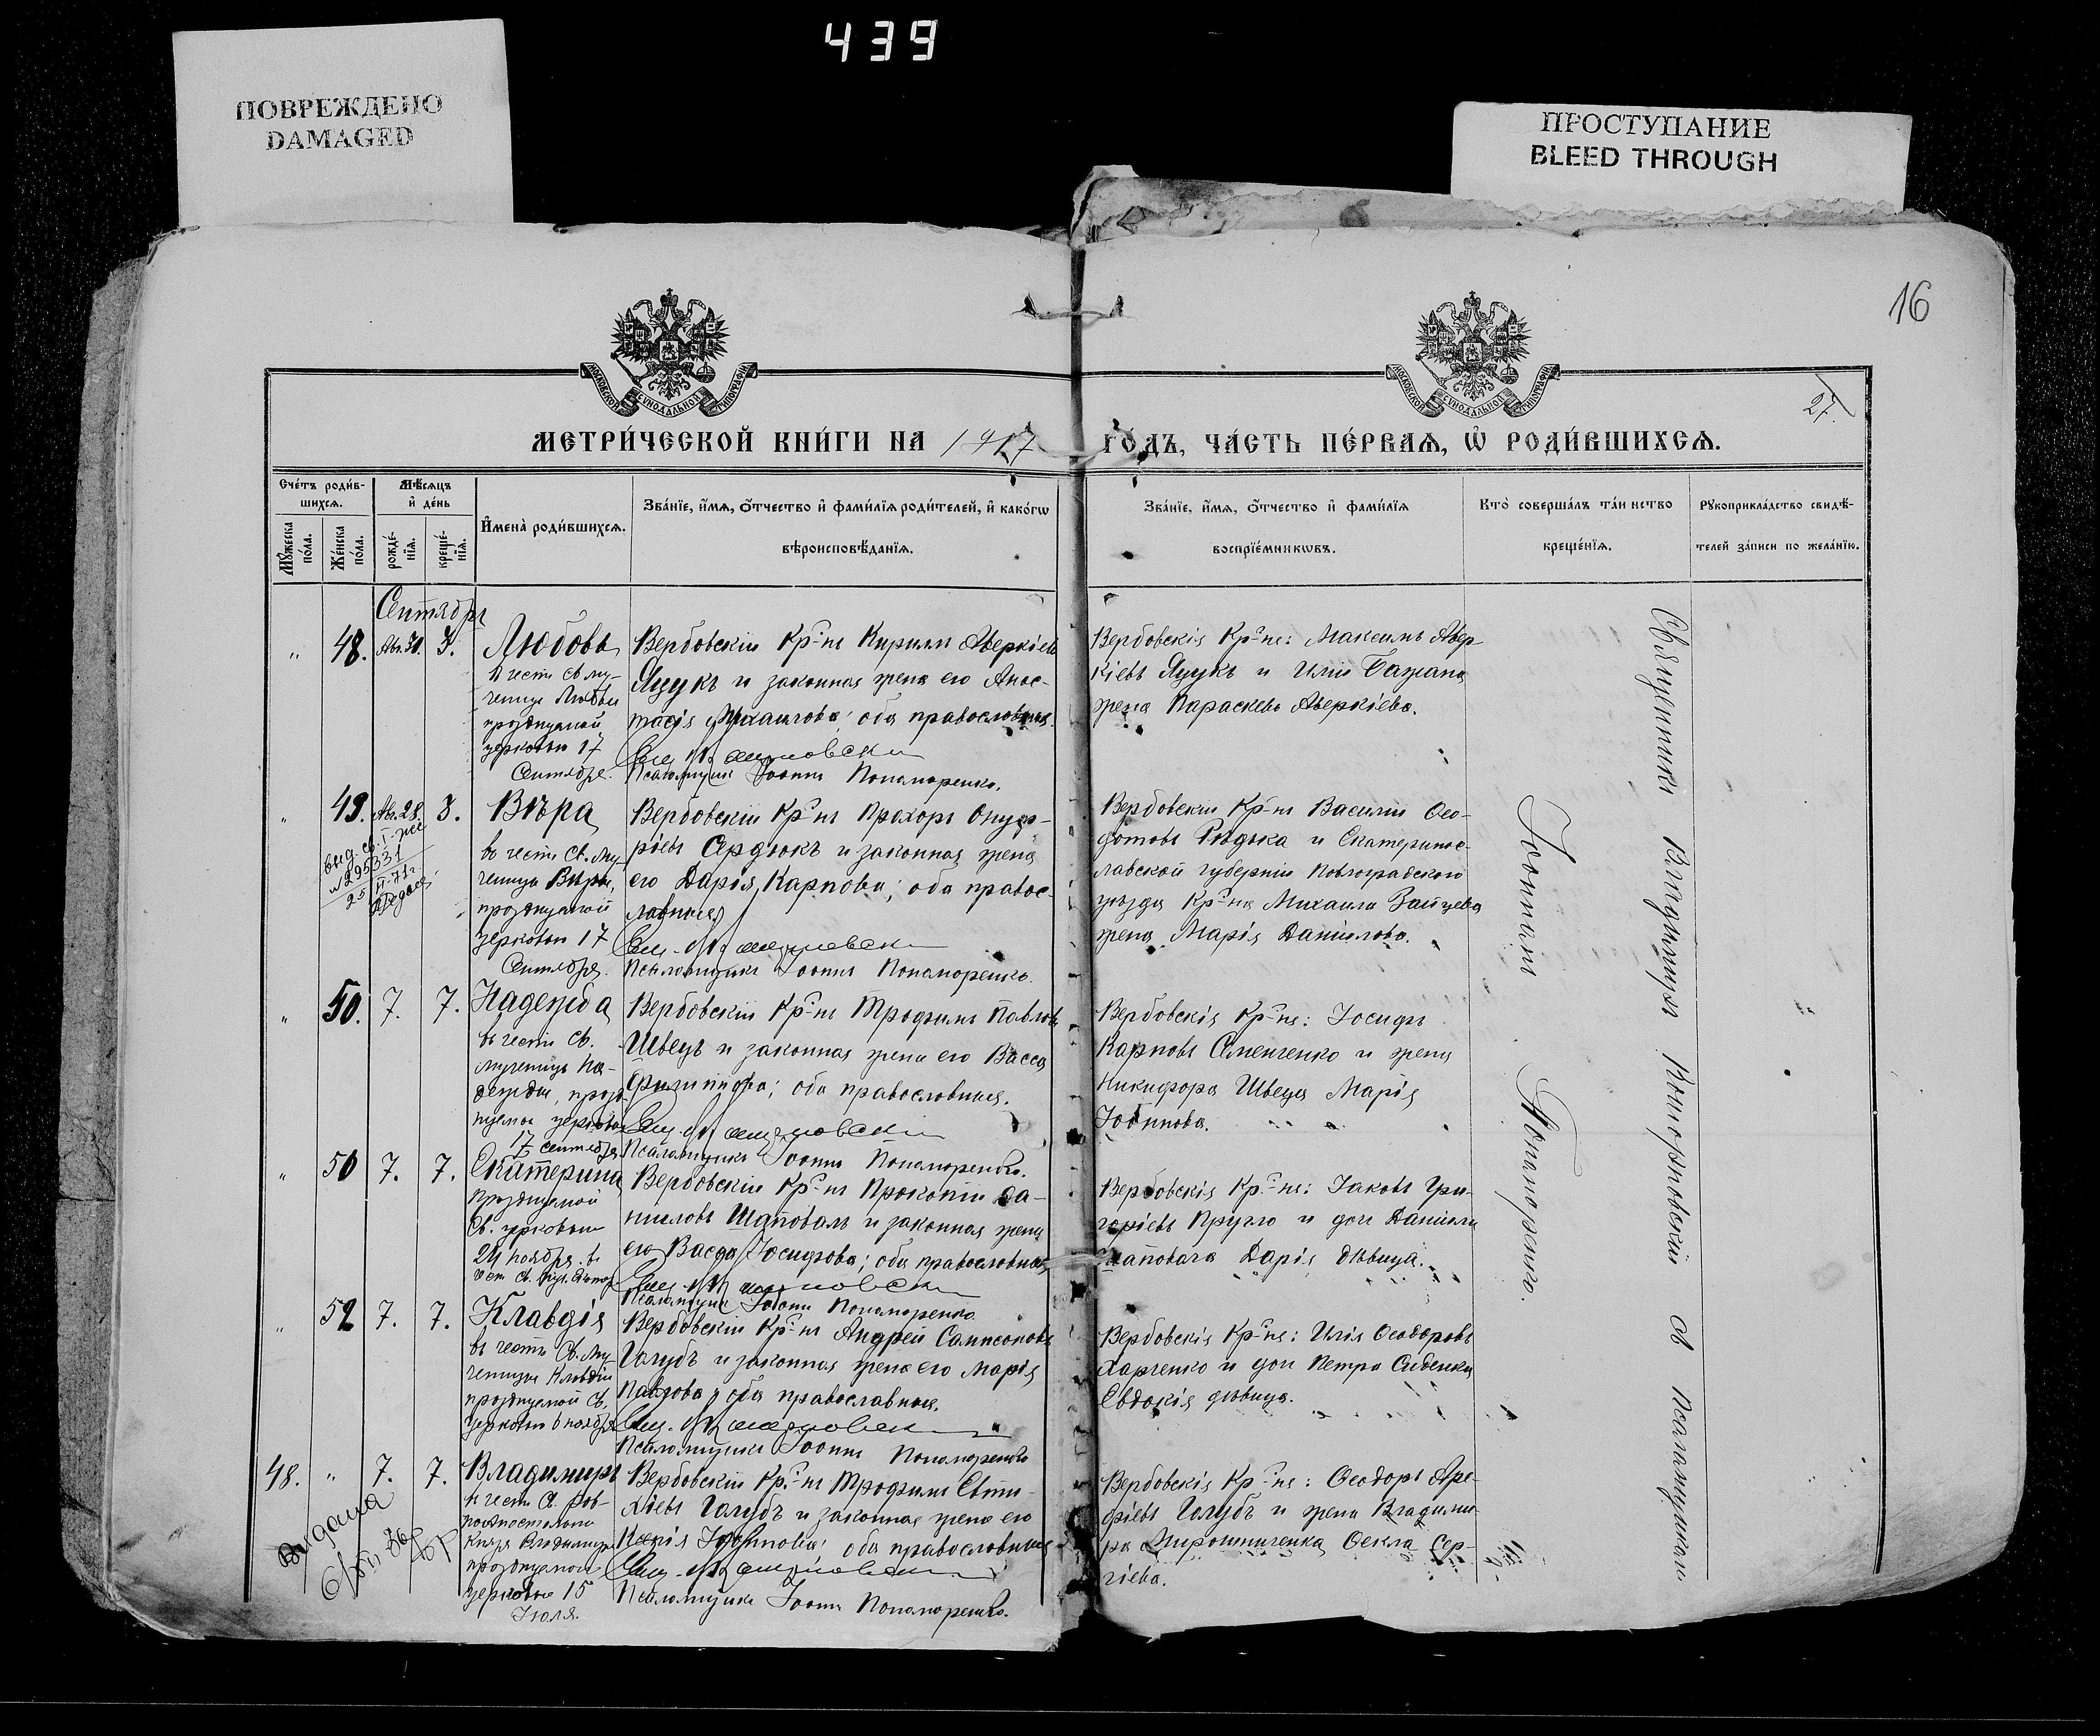 439
ПОВРЕЖДЕНО
DAMAGED
ПРОСТУПАНИЕ
BLEED THROUGH
16
27.
МОСКОВСКОЙ СѴНОДАЛЬНОЙ ТИПОГРАФІИ
МОСКОВСКОЙ СѴНОДАЛЬНОЙ ТИПОГРАФІИ
МЕТРИ́ЧЕСКОЙ КНИ́ГИ НА 1917 ГО́ДЪ, ЧА́СТЬ ПЕ́РВАѦ, Ѡ҆ РОДИ́ВШИХСѦ.
Сче́тъ роди́в-
шихсѧ.
Мꙋ́жеска по́ла.
Же́нска по́ла.
Мѣ́сѧцъ и҆ де́нь
рожде́-нїѧ.
креще́-нїѧ.
И҆мена̀ роди́вшихсѧ.
Зва́нїе, и҆́мѧ, ѻ҆́тчество и҆ фами́лїѧ роди́телей, и҆ како́гѡ
вѣроисповѣ́данїѧ.
Зва́нїе, и҆́мѧ, ѻ҆́тчество и҆ фами́лїѧ
воспрїе́мникѡвъ.
Кто̀ соверша́лъ та́инство
креще́нїѧ.
Рꙋкоприкла́дство свидѣ́-
телей за́писи по жела́нїю.
Сентябрь
" 48. Авг. 30. 3. Любовь
в честь св. му-
ченицы Любви
празднуемой
церковью 17
Сентября.
Вербовскій Кр-нъ Кириллъ Аверкіевъ
Яцукъ и законная жена его Анас-
тасія Михаилова; оба православные.
Псаломщикъ Іоаннъ Пономаренко.
Вербовскія Кр-не: Максимъ Авер-
кіевъ Яцукъ и Иліи Бажана
жена Параскева Аверкіева.
" 49. Авг. 28. 3. Вѣра
въ честь Св. Му-
ченицы Вѣры,
празднуемой
церковью 17
Сентября.
№ 295331
Вербовскій Кр-нъ Прохоръ Онуф-
ріевъ Сердюкъ и законная жена
его Дарія Карпова; оба правос-
лавные
Псаломщикъ Іоаннъ Пономаренко.
Вербовскій Кр-нъ Василій Ѳео-
дотовъ Рѣдька и Екатеринос-
лавской губерніи Павлоградскаго
уѣзда Кр-на Михаила Зайцева
жена Марія Даніилова.
" 50. 7. 7. Надежда
въ честь Св.
мученицы На-
дежды, празд-
нуемой церковью
17 сентября
Вербовскій Кр-нъ Трофимъ Павловъ
Швецъ и законная жена его Васса
Филиппова; оба православные.
Псаломщикъ Іоаннъ Пономаренко.
Вербовскія Кр-не: Іосифъ
Карповъ Семенченко и жена
Никифора Швеца Марія
Іоаннова.
" 51 7. 7. Екатерина
празднуемой
Св. церковью
24 ноября въ
Вербовскій Кр-нъ Прокопій Да-
ниловъ Шаповалъ и законная жена
его Васса Іосифова; оба православные
Псаломщикъ Іоаннъ Пономаренко
Вербовскія Кр-не: Іаковъ Гри-
горіевъ Кругло и дочь Даніила
Шаповала Дарія дѣвица.
" 52 7. 7. Клавдія
въ честь Св. Му-
ченицы Клавдіи
празднуемой Св.
церковью 6 ноября
Вербовскій Кр-нъ Андрей Сампсоновъ
Голубъ и законная жена его Марія
Павлова; оба православные.
Псаломщикъ Іоаннъ Пономаренко
Вербовскія Кр-не: Илія Ѳеодоровъ
Харченко и дочь Петра Сиденка
Евдокія дѣвица.
48. " 7. 7. Владиміръ
въ честь Св. Рав-
ноапостольнаго
Князя Владиміра
празднуемой
церковью 15
Іюля.
Выдана
Вербовскій Кр-нъ Трофимъ Евти-
хіевъ Голубъ и законная жена его
Ксенія Іоаннова; оба православные
Псаломщикъ Іоаннъ Пономаренко.
Вербовскія Кр-не: Ѳеодоръ Аре-
фіевъ Голубъ и жена Владими-
ра Мирошниченка Ѳекла Сер-
гіева.
Священникъ Владиміръ съ псаломщикомъ
Іоанномъ Пономаренко.